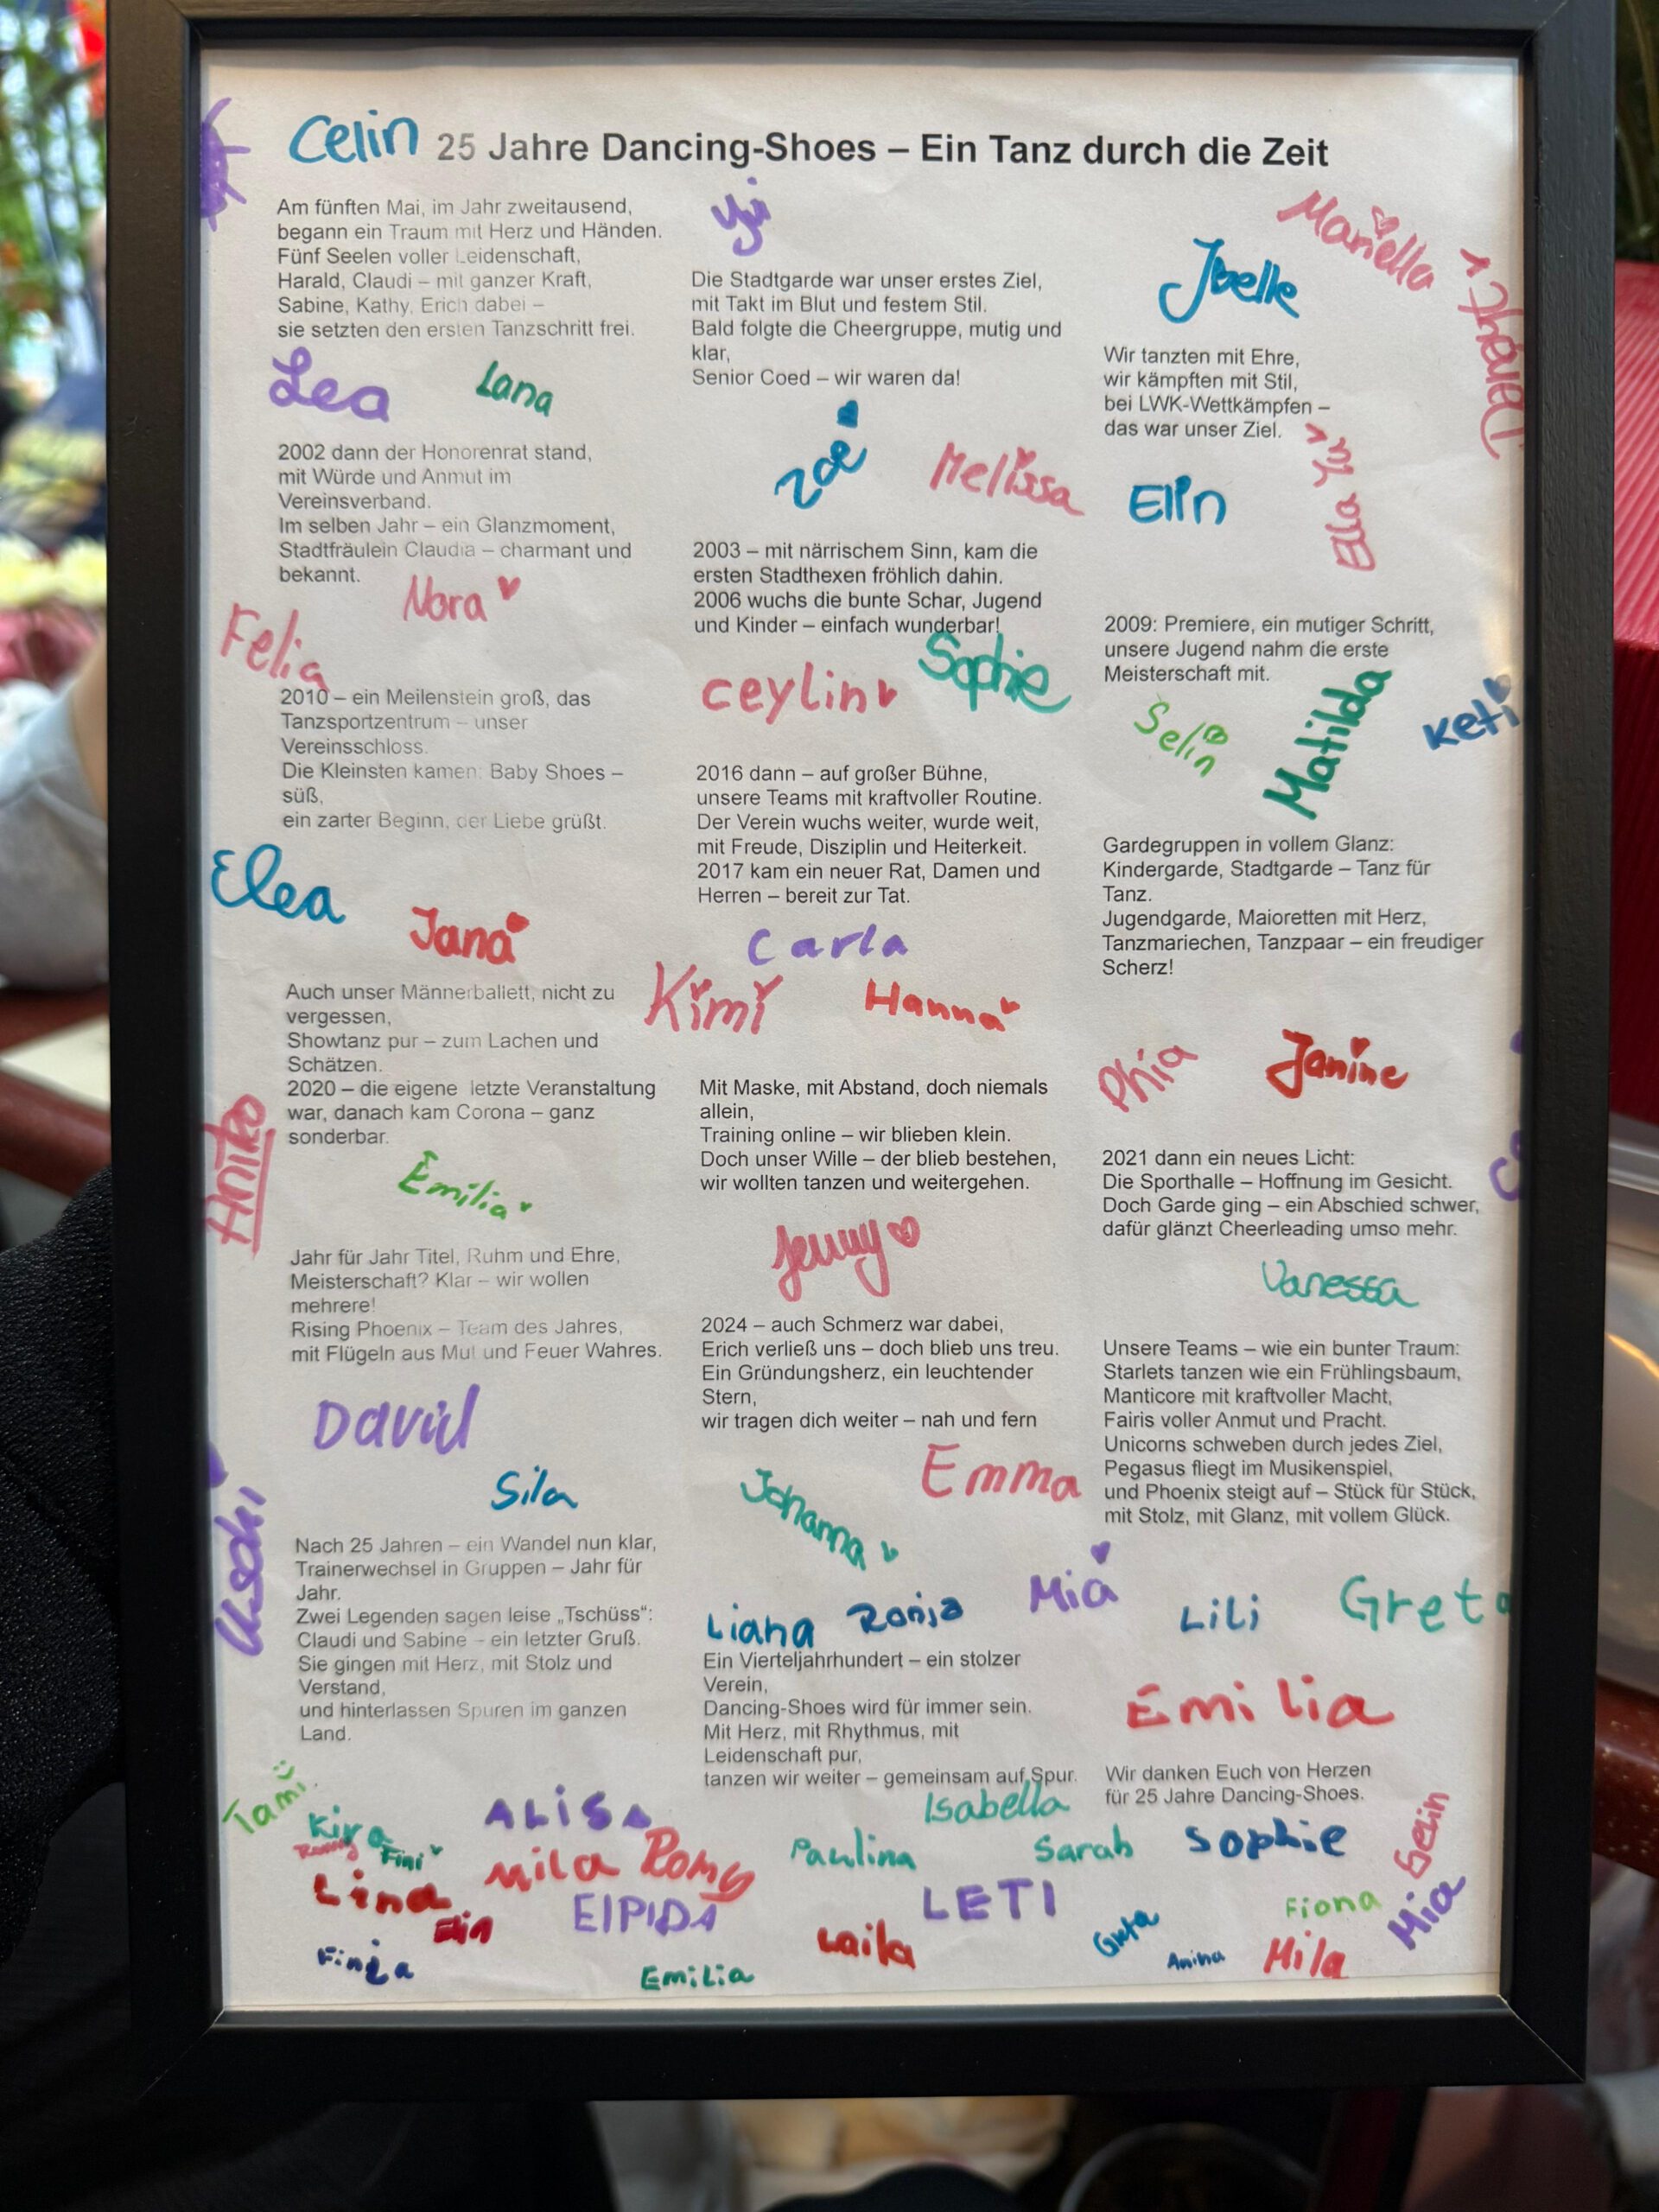 Celin
25 Jahre Dancing-Shoes – Ein Tanz durch die Zeit
Am fünften Mai, im Jahr zweitausend,
begann ein Traum mit Herz und Händen.
Fünf Seelen voller Leidenschaft,
Harald, Claudi – mit ganzer Kraft,
Sabine, Kathy, Erich dabei –
sie setzten den ersten Tanzschritt frei.
Die Stadtgarde war unser erstes Ziel,
mit Takt im Blut und festem Stil.
Bald folgte die Cheergruppe, mutig und
klar,
Senior Coed – wir waren da!
Mariella
Joelle
Wir tanzten mit Ehre,
wir kämpften mit Stil,
bei LWK-Wettkämpfen –
das war unser Ziel.
Lea
Lana
2002 dann der Honorenrat stand,
mit Würde und Anmut im
Vereinsverband.
Im selben Jahr – ein Glanzmoment,
Stadtfräulein Claudia – charmant und
bekannt.
Zoe
Melissa
2003 – mit närrischem Sinn, kam die
ersten Stadthexen fröhlich dahin.
2006 wuchs die bunte Schar, Jugend
und Kinder – einfach wunderbar!
Elin
Ella
2009: Premiere, ein mutiger Schritt,
unsere Jugend nahm die erste
Meisterschaft mit.
Nora
Felia
2010 – ein Meilenstein groß, das
Tanzsportzentrum – unser
Vereinsschloss.
Die Kleinsten kamen: Baby Shoes –
süß,
ein zarter Beginn, der Liebe grüßt.
ceylin
Sophie
2016 dann – auf großer Bühne,
unsere Teams mit kraftvoller Routine.
Der Verein wuchs weiter, wurde weit,
mit Freude, Disziplin und Heiterkeit.
2017 kam ein neuer Rat, Damen und
Herren – bereit zur Tat.
Selin
Matilda
Keti
Gardegruppen in vollem Glanz:
Kindergarde, Stadtgarde – Tanz für
Tanz.
Jugendgarde, Maioretten mit Herz,
Tanzmariechen, Tanzpaar – ein freudiger
Scherz!
Elea
Jana
Auch unser Männerballett, nicht zu
vergessen,
Showtanz pur – zum Lachen und
Schätzen.
2020 – die eigene letzte Veranstaltung
war, danach kam Corona – ganz
sonderbar.
Carla
Kimi
Hanna
Mit Maske, mit Abstand, doch niemals
allein,
Training online – wir blieben klein.
Doch unser Wille – der blieb bestehen,
wir wollten tanzen und weitergehen.
Phia
Janine
2021 dann ein neues Licht:
Die Sporthalle – Hoffnung im Gesicht.
Doch Garde ging – ein Abschied schwer,
dafür glänzt Cheerleading umso mehr.
Aniko
Emilia
Jahr für Jahr Titel, Ruhm und Ehre,
Meisterschaft? Klar – wir wollen
mehrere!
Rising Phoenix – Team des Jahres,
mit Flügeln aus Mut und Feuer Wahres.
Jenny
2024 – auch Schmerz war dabei,
Erich verließ uns – doch blieb uns treu.
Ein Gründungsherz, ein leuchtender
Stern,
wir tragen dich weiter – nah und fern
Vanessa
Unsere Teams – wie ein bunter Traum:
Starlets tanzen wie ein Frühlingsbaum,
Manticore mit kraftvoller Macht,
Fairis voller Anmut und Pracht.
Unicorns schweben durch jedes Ziel,
Pegasus fliegt im Musikenspiel,
und Phoenix steigt auf – Stück für Stück,
mit Stolz, mit Glanz, mit vollem Glück.
David
Sila
Uschi
Nach 25 Jahren – ein Wandel nun klar,
Trainerwechsel in Gruppen – Jahr für
Jahr.
Zwei Legenden sagen leise „Tschüss“:
Claudi und Sabine – ein letzter Gruß.
Sie gingen mit Herz, mit Stolz und
Verstand,
und hinterlassen Spuren im ganzen
Land.
Emma
Johanna
Liana
Ronja
Mia
Lili
Greta
Ein Vierteljahrhundert – ein stolzer
Verein,
Dancing-Shoes wird für immer sein.
Mit Herz, mit Rhythmus, mit
Leidenschaft pur,
tanzen wir weiter – gemeinsam auf Spur.
Emilia
Wir danken Euch von Herzen
für 25 Jahre Dancing-Shoes.
Tami
Kira
Fini
ALiSa
Isabella
Mila
Romy
Paulina
Sarah
Sophie
Selin
Lina
Elin
ElPIDA
LETI
Fiona
Mia
Laila
Greta
Finja
Emilia
Anina
Mila